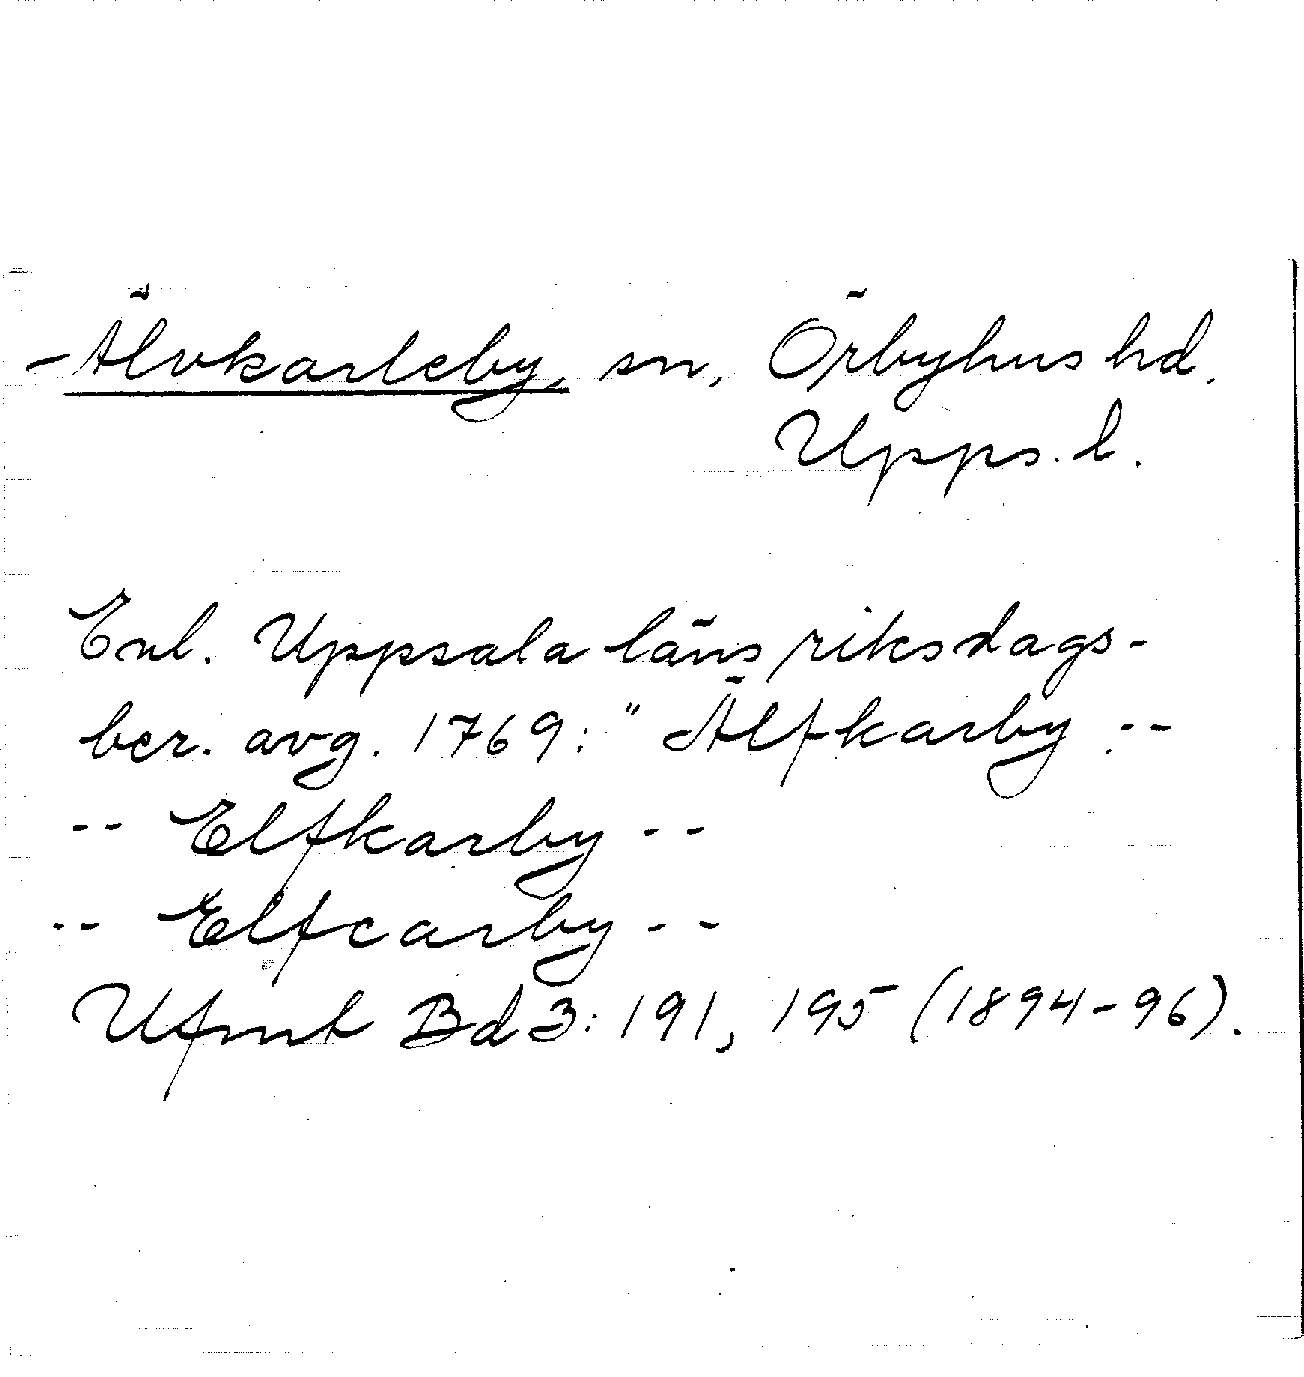 - Älvkarleby, sn, Örbyhus hd.
Upps. l.
Enl. Uppsala läns riksdags-
ber. avg. 1769: " Älfkarby --
-- Elfkarby --
-- Elfcarby --
Ufmt Bd 3: 191, 195 (1894-96).